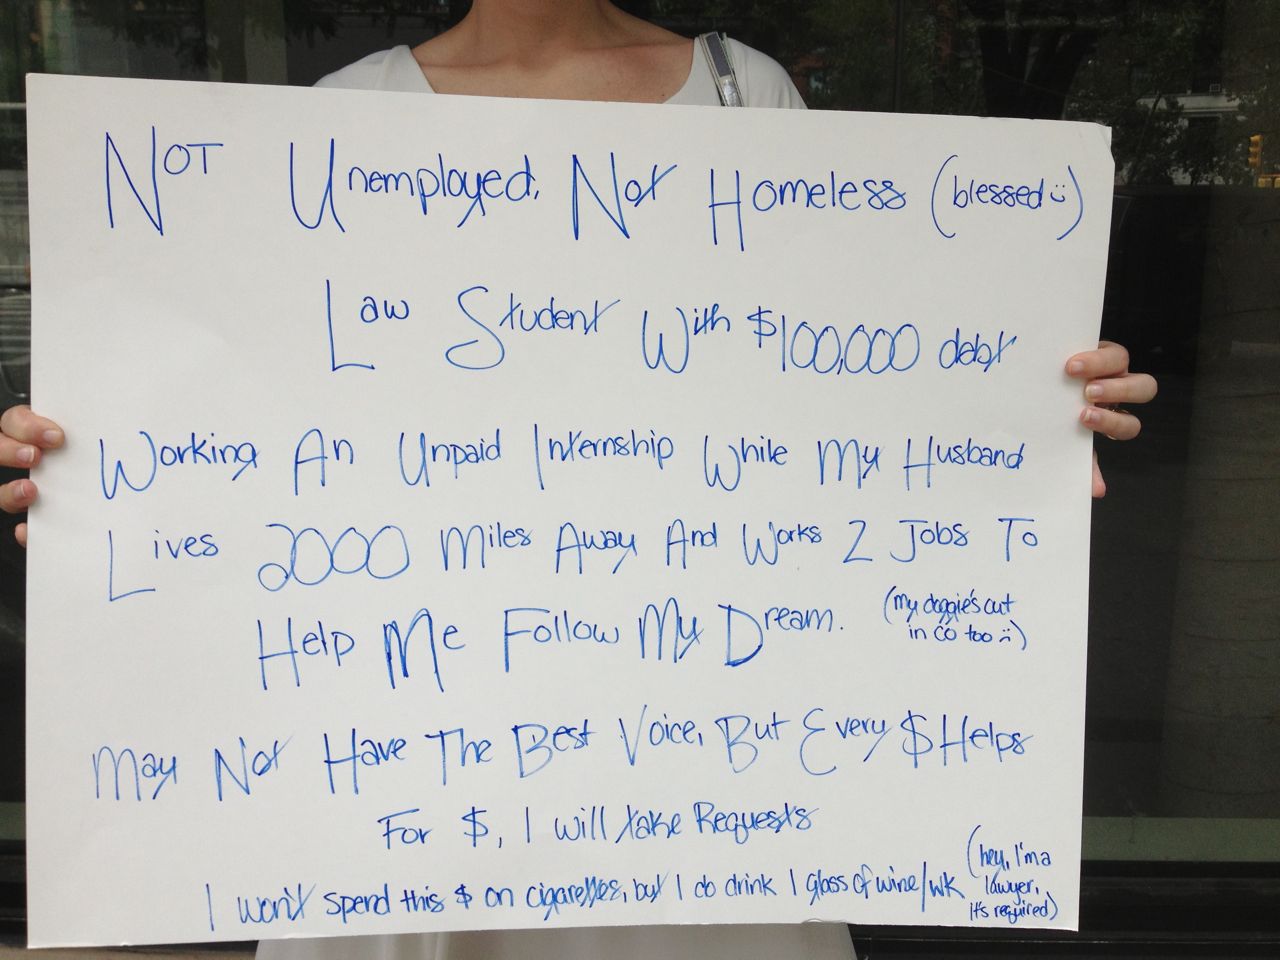 NOT Unemployed, Not Homeless (blessed :))
Law Student With $100,000 debt
Working An Unpaid Internship While My Husband
Lives 2000 Miles Away And Works 2 Jobs To
Help Me Follow My Dream. (my doggie's out
in CO too :()
May Not Have The Best Voice, But Every $ Helps
For $, I will take Requests
I won't spend this $ on cigarettes, but I do drink 1 glass of wine/wk (hey, I'm a
lawyer,
it's required)